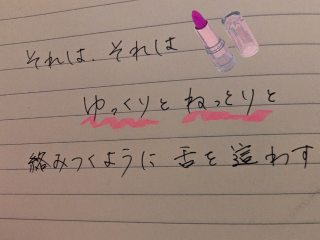 それは、それは
ゆっくりと ねっとりと
絡みつくように 舌を 這わす